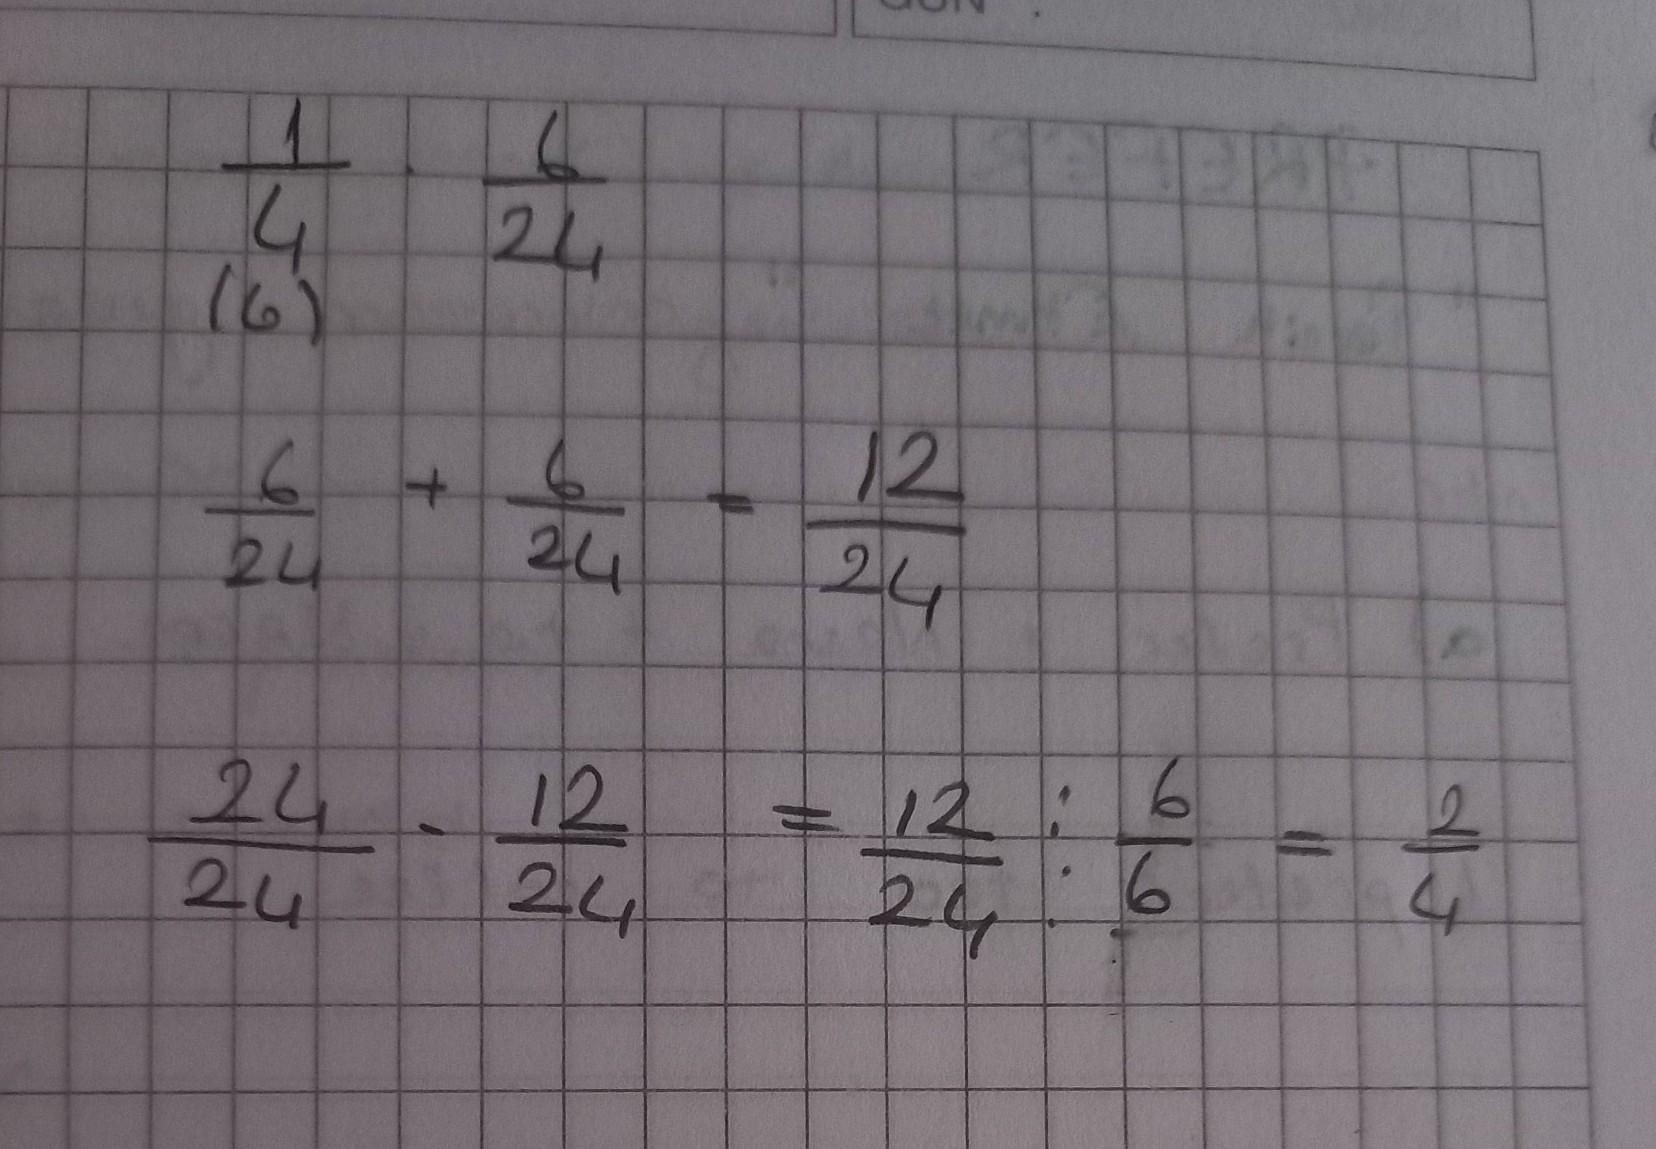 GÜN :
1/4 . 6/24
(6)
6/24 + 6/24 = 12/24
24/24 - 12/24 = 12/24 : 6/6 = 2/4